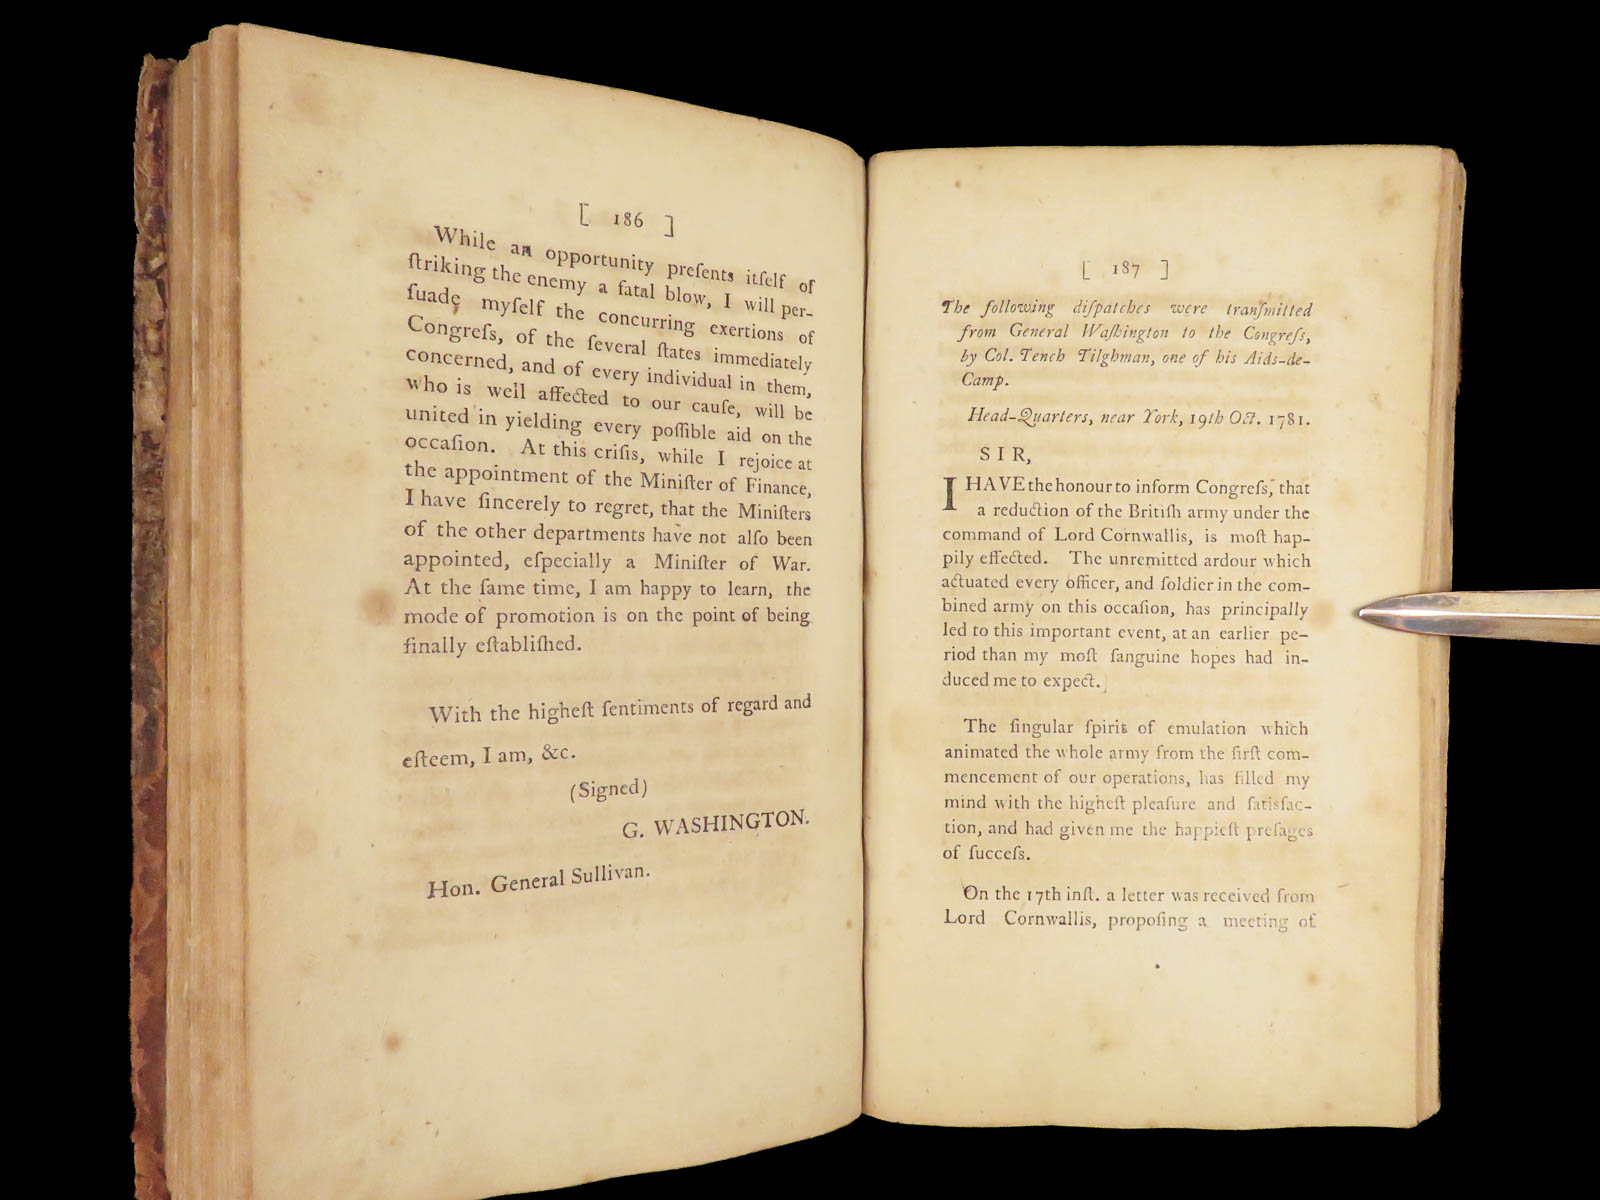 [ 186 ]
While an opportunity preſents itſelf of
ſtriking the enemy a fatal blow, I will per-
ſuade myſelf the concurring exertions of
Congreſs, of the ſeveral ſtates immediately
concerned, and of every individual in them,
who is well affected to our cauſe, will be
united in yielding every poſſible aid on the
occaſion. At this criſis, while I rejoice at
the appointment of the Miniſter of Finance,
I have ſincerely to regret, that the Miniſters
of the other departments have not alſo been
appointed, eſpecially a Miniſter of War.
At the ſame time, I am happy to learn, the
mode of promotion is on the point of being
finally eſtabliſhed.
With the higheſt ſentiments of regard and
eſteem, I am, &c.
(Signed)
G. WASHINGTON.
Hon. General Sullivan.
[ 187 ]
The following diſpatches were tranſmitted
from General Waſhington to the Congreſs,
by Col. Tench Tilghman, one of his Aids-de-
Camp.
Head-Quarters, near York, 19th Oct. 1781.
SIR,
I HAVE the honour to inform Congreſs, that
a reduction of the Britiſh army under the
command of Lord Cornwallis, is moſt hap-
pily effected. The unremitted ardour which
actuated every officer, and ſoldier in the com-
bined army on this occaſion, has principally
led to this important event, at an earlier pe-
riod than my moſt ſanguine hopes had in-
duced me to expect.
The ſingular ſpirit of emulation which
animated the whole army from the firſt com-
mencement of our operations, has filled my
mind with the higheſt pleaſure and ſatisfac-
tion, and had given me the happieſt preſages
of ſucceſs.
On the 17th inſt. a letter was received from
Lord Cornwallis, propoſing a meeting of